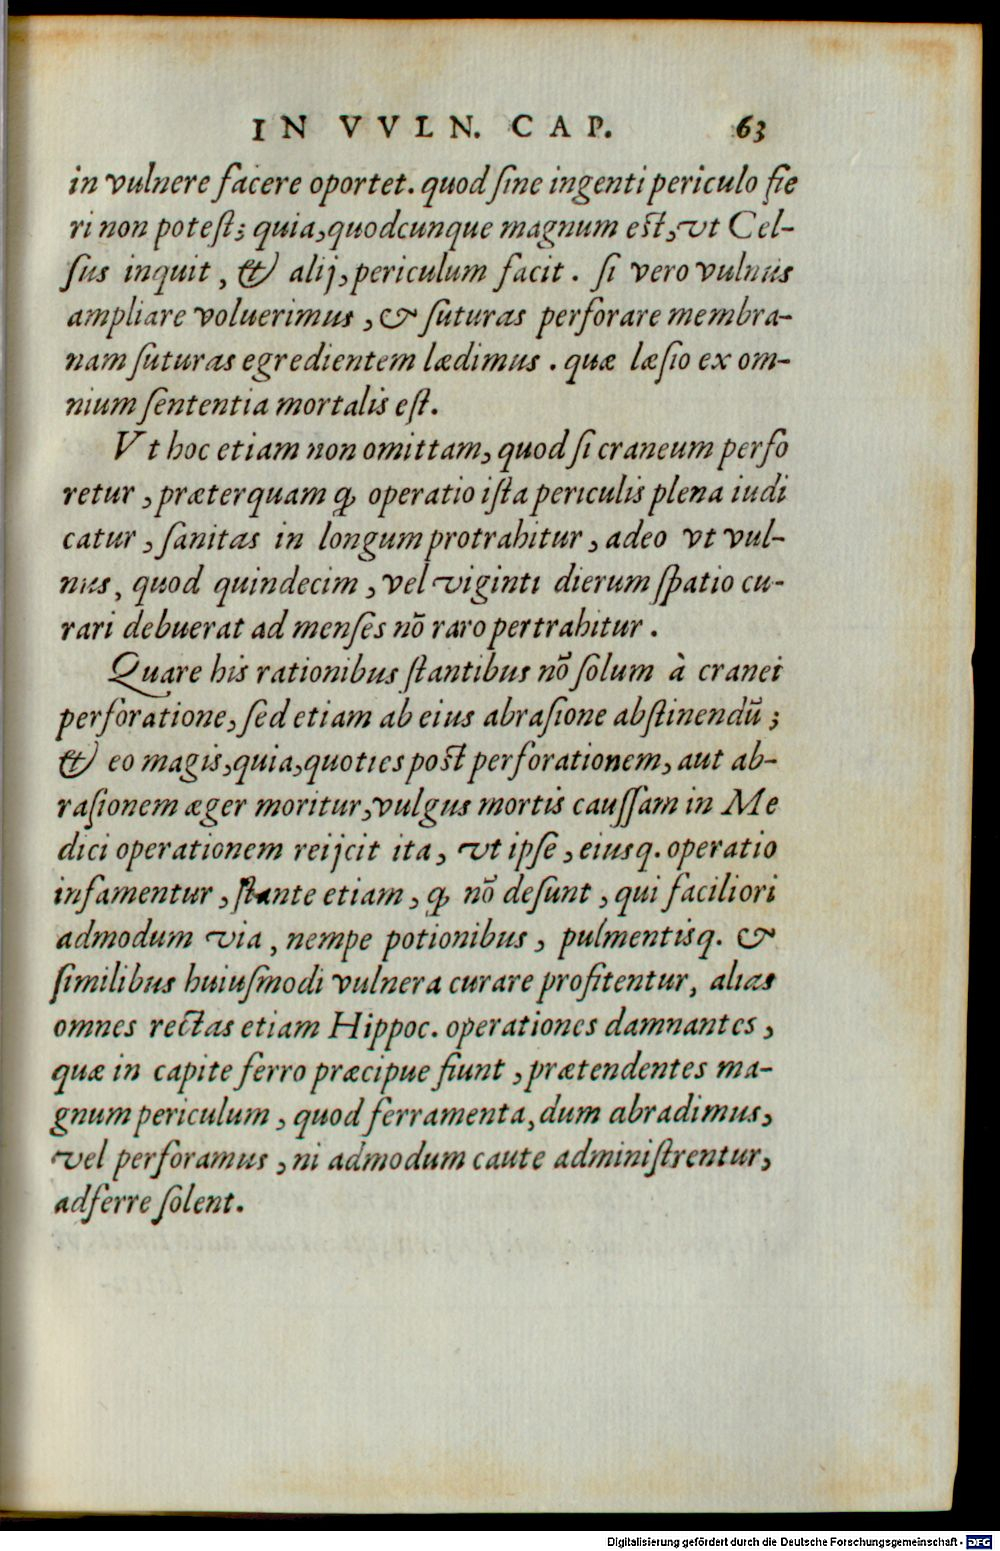 IN VVLN. CAP. 63
in vulnere facere oportet. quod ſine ingenti periculo fie
ri non poteſt; quia, quodcunque magnum eſt, vt Cel-
ſus inquit, & alij, periculum facit. ſi vero vulnus
ampliare voluerimus, & ſuturas perforare membra-
nam ſuturas egredientem lædimus. quæ læſio ex om-
nium ſententia mortalis eſt.
Vt hoc etiam non omittam, quod ſi craneum perfo
retur, præterquam ꝙ operatio iſta periculis plena iudi
catur, ſanitas in longum protrahitur, adeo vt vul-
nus, quod quindecim, vel viginti dierum ſpatio cu-
rari debuerat ad menſes nõ raro pertrahitur.
Quare his rationibus ſtantibus nõ ſolum à cranei
perforatione, ſed etiam ab eius abraſione abſtinendũ;
& eo magis, quia, quoties poſt perforationem, aut ab-
raſionem æger moritur, vulgus mortis cauſſam in Me
dici operationem reijcit ita, vt ipſe, eiusq. operatio
infamentur, ſtante etiam, ꝙ nõ deſunt, qui faciliori
admodum via, nempe potionibus, pulmentisq. &
ſimilibus huiuſmodi vulnera curare profitentur, alias
omnes rectas etiam Hippoc. operationes damnantes,
quæ in capite ferro præcipue fiunt, prætendentes ma-
gnum periculum, quod ferramenta, dum abradimus,
vel perforamus, ni admodum caute adminiſtrentur,
adferre ſolent.
Digitalisierung gefördert durch die Deutsche Forschungsgemeinschaft - DFG